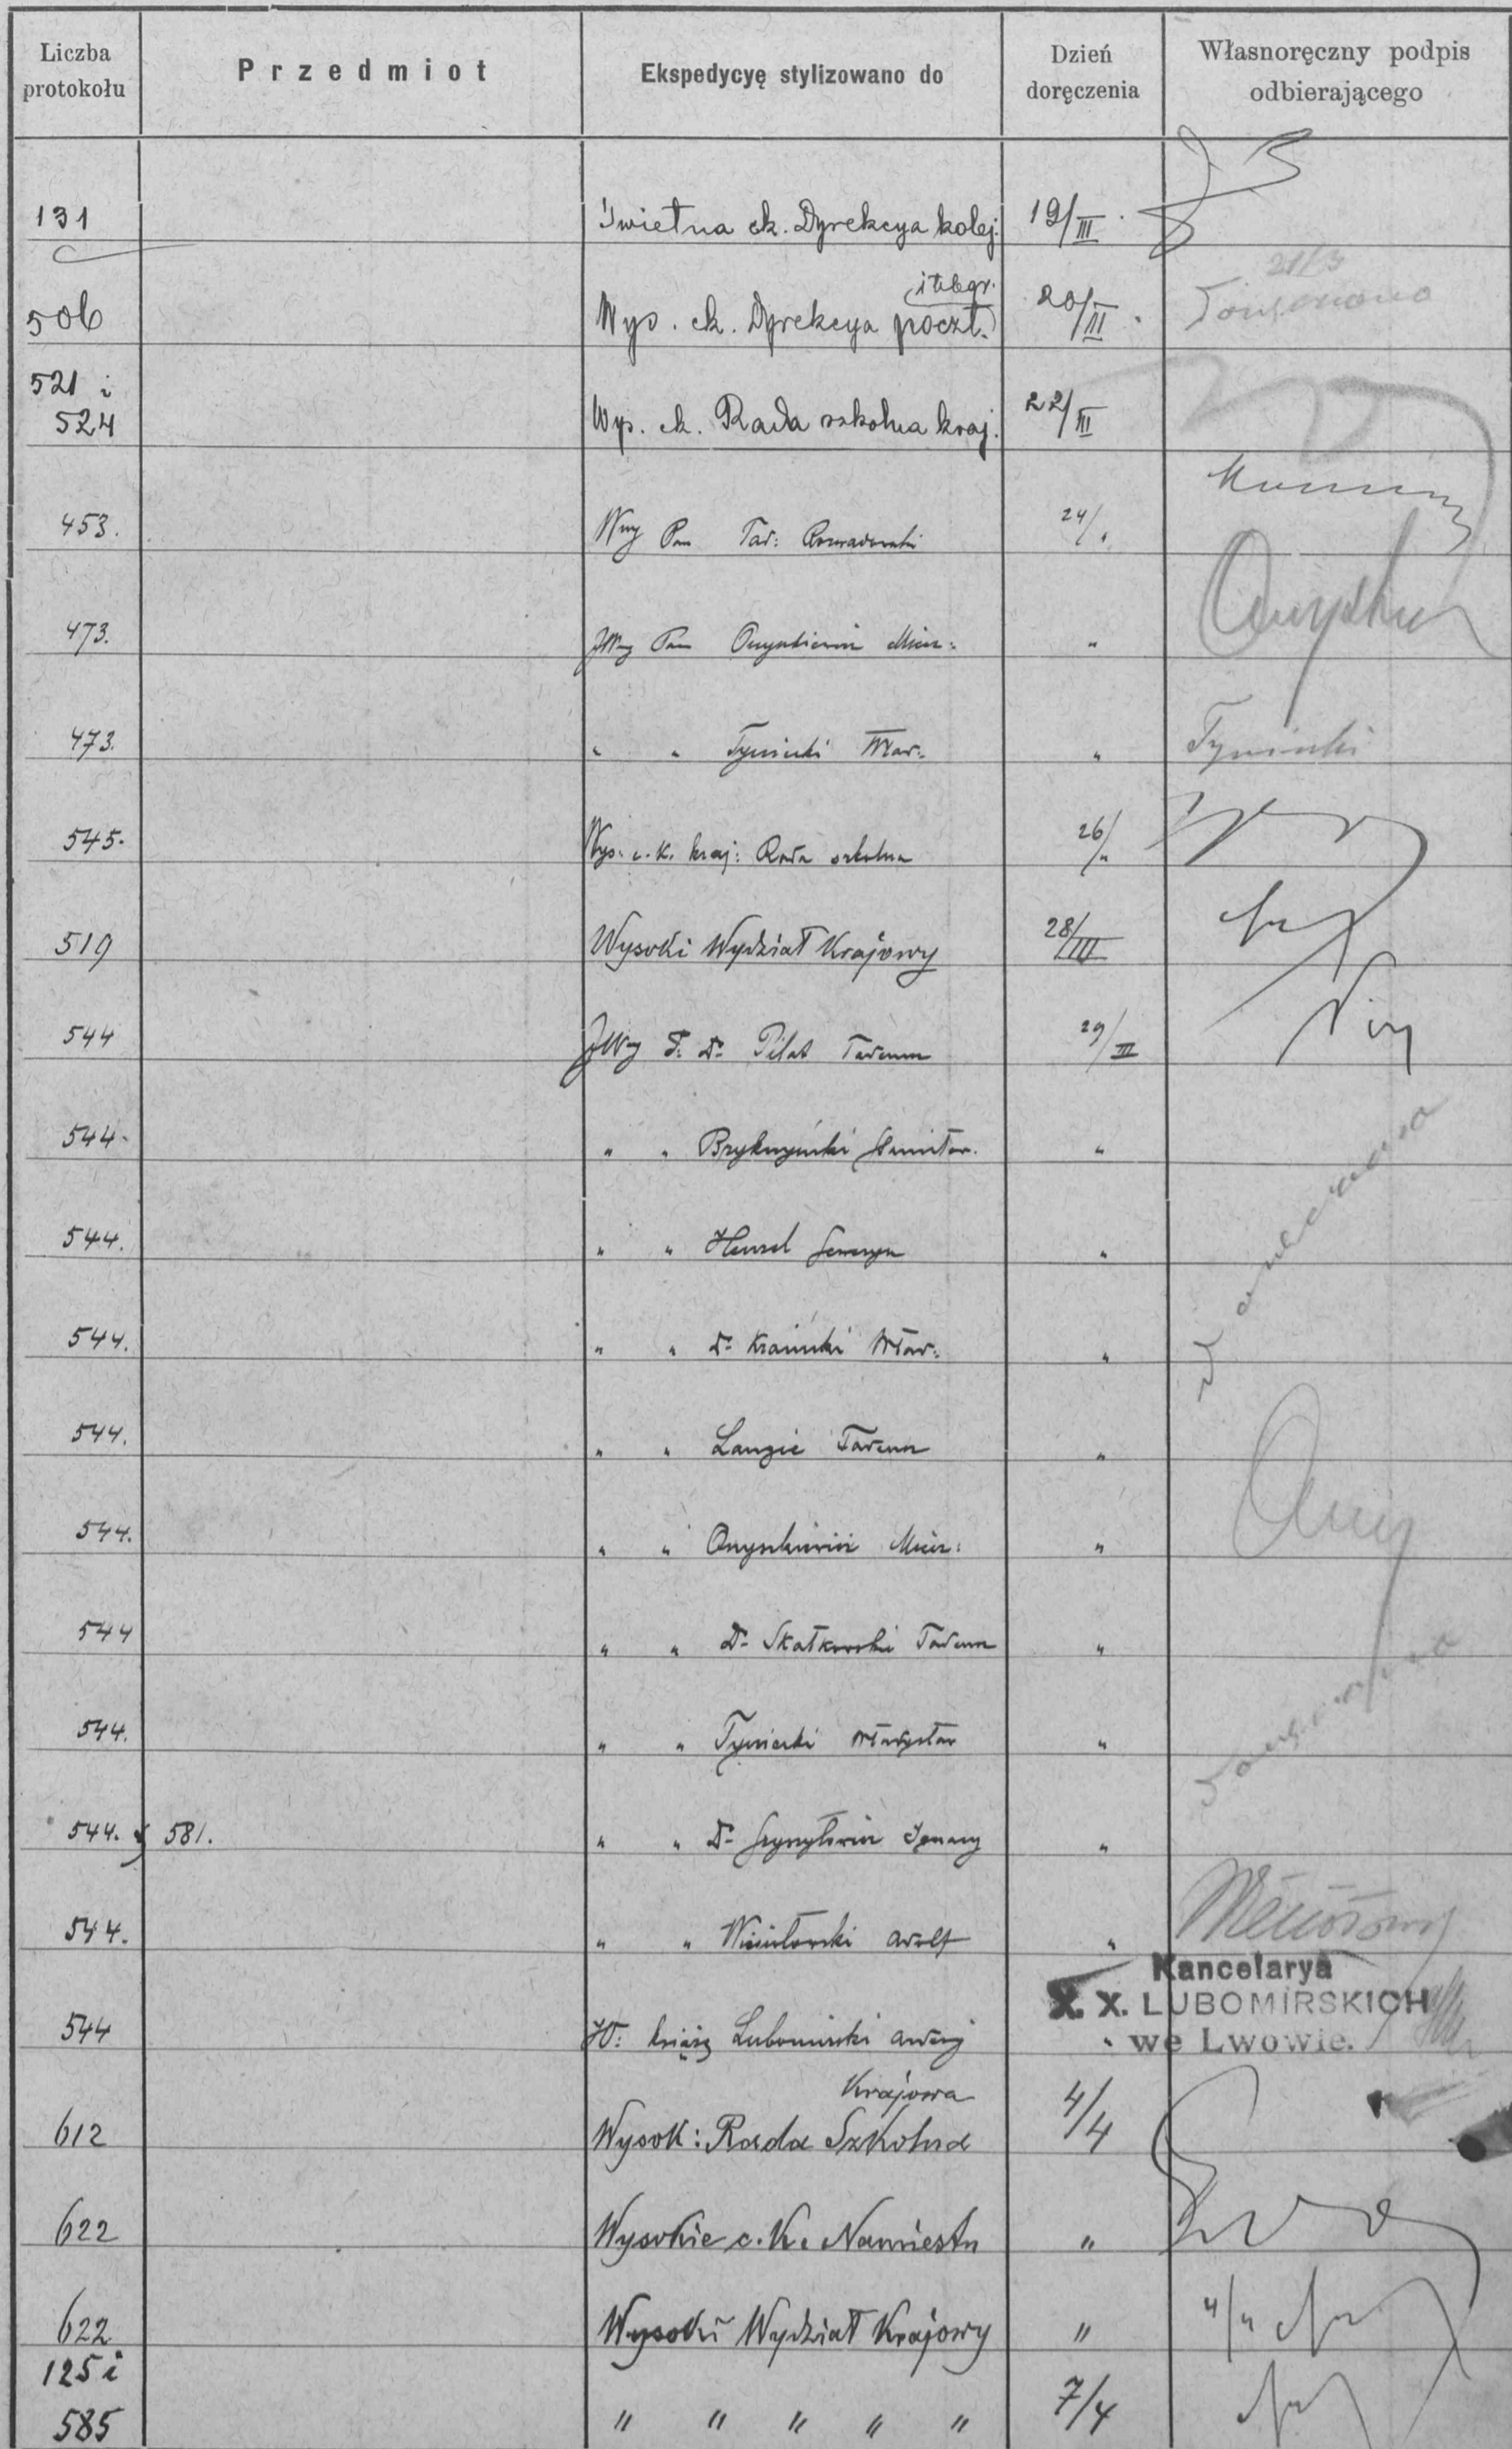 Liczba protokołu | Przedmiot | Ekspedycyę stylizowano do | Dzień doręczenia | Własnoręczny podpis odbierającego
131 Świetna ck. Dyrekcya kolej. 19/III
i telegr. 21/3
506 Wys. ck. Dyrekcya poczt. 20/III
521 i
524 Wys. ck. Rada szkolna kraj. 22/III
453. Wny Pan Tad: Rozwadowski 24/"
473. JWny Pan Onyszkiewicz Miecz: "
473. " " Tyniecki Wład: " Tyniecki
545. Wys. c. K. kraj: Rada szkolna 26/"
519 Wysoki Wydział Krajowy 28/III
544 JWny P. Dr Pilat Tadeusz 29/III
544. " " Brykczyński Stanisław. "
544. " " Hensel Seweryn "
544. " " Dr Kraiński Wład: "
544. " " Langie Tadeusz "
544. " " Onyszkiewicz Miecz: "
544 " " Dr Skałkowski Tadeusz "
544. " " Tyniecki Władysław "
544. i 581. " " Dr Szyszyłowicz Ignacy "
544. " " Wiesiołowski Adolf "
Kancelarya
X. X. LUBOMIRSKICH
544 JO: książę Lubomirski Andrzej " we Lwowie.
Krajowa
612 Wysok: Rada Szkolna 4/4
622 Wysokie c. K. Namiestn "
622 Wysoki Wydział Krajowy " 4/4
125 i
585 " " " " " 7/4